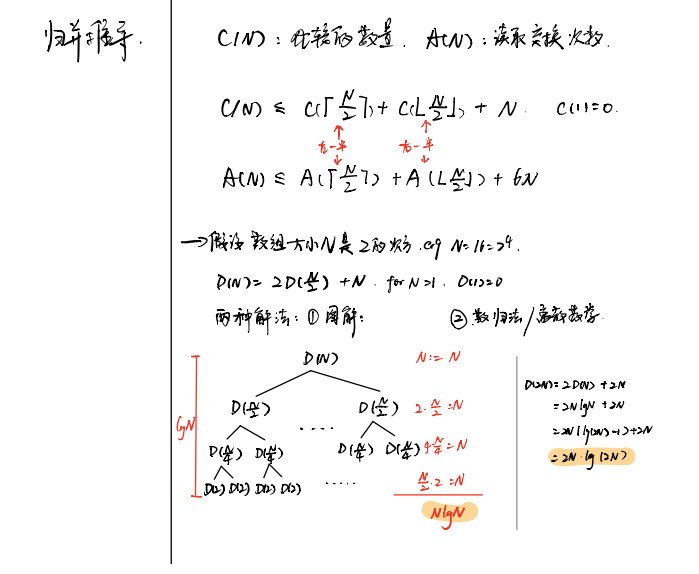 归并推导.
C(N): 比较的数量. A(N): 读取交换次数.
C(N) ≤ C(⌈N/2⌉) + C(⌊N/2⌋) + N. C(1)=0.
左一半 右一半
A(N) ≤ A(⌈N/2⌉) + A(⌊N/2⌋) + 6N
→假设 数组大小N是2的次方. eg N=16=2⁴.
D(N)= 2D(N/2) +N. for N>1, D(1)=0
两种解法: ① 图解: ② 数归法/离散数学.
D(N) N:= N
D(N/2) ..... D(N/2) 2·N/2 =N
lgN
D(N/4) D(N/4) .... D(N/4) D(N/4) 4·N/4 = N
D(2) D(2) D(2) D(2) ..... N/2·2 =N
NlgN
D(2N)= 2D(N) + 2N
= 2N lgN + 2N
= 2N (lg(2N)-1) + 2N
= 2N·lg(2N)